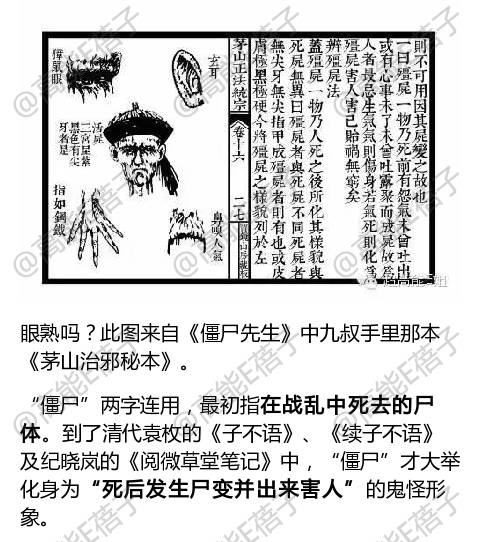 則不可用因其屍變之故也
一曰殭屍一物乃死前有怨氣未曾吐出
或有心事未了未曾吐露聚而成屍故為
人者最忌生氣氣則傷身若氣死則化為
殭屍害人害己貽禍無窮矣
辨殭屍法
蓋殭屍一物乃人死之後所化其樣貌與
死屍無異曰殭屍者與死屍不同死屍者
無尖牙無尖指甲成殭屍者則有也或皮
膚極黑極硬今將殭屍之樣貌列於左
茅山正法統宗
卷十六
二七
玄耳
鼻嗅人氣
活屍
二宮呈紫
黑色有尖
牙者是
指如鋼鐵
眼熟吗？此图来自《僵尸先生》中九叔手里那本
《茅山治邪秘本》。
“僵尸”两字连用，最初指在战乱中死去的尸
体。到了清代袁枚的《子不语》、《续子不语》
及纪晓岚的《阅微草堂笔记》中，“僵尸”才大举
化身为“死后发生尸变并出来害人”的鬼怪形
象。
@高能E蓓子